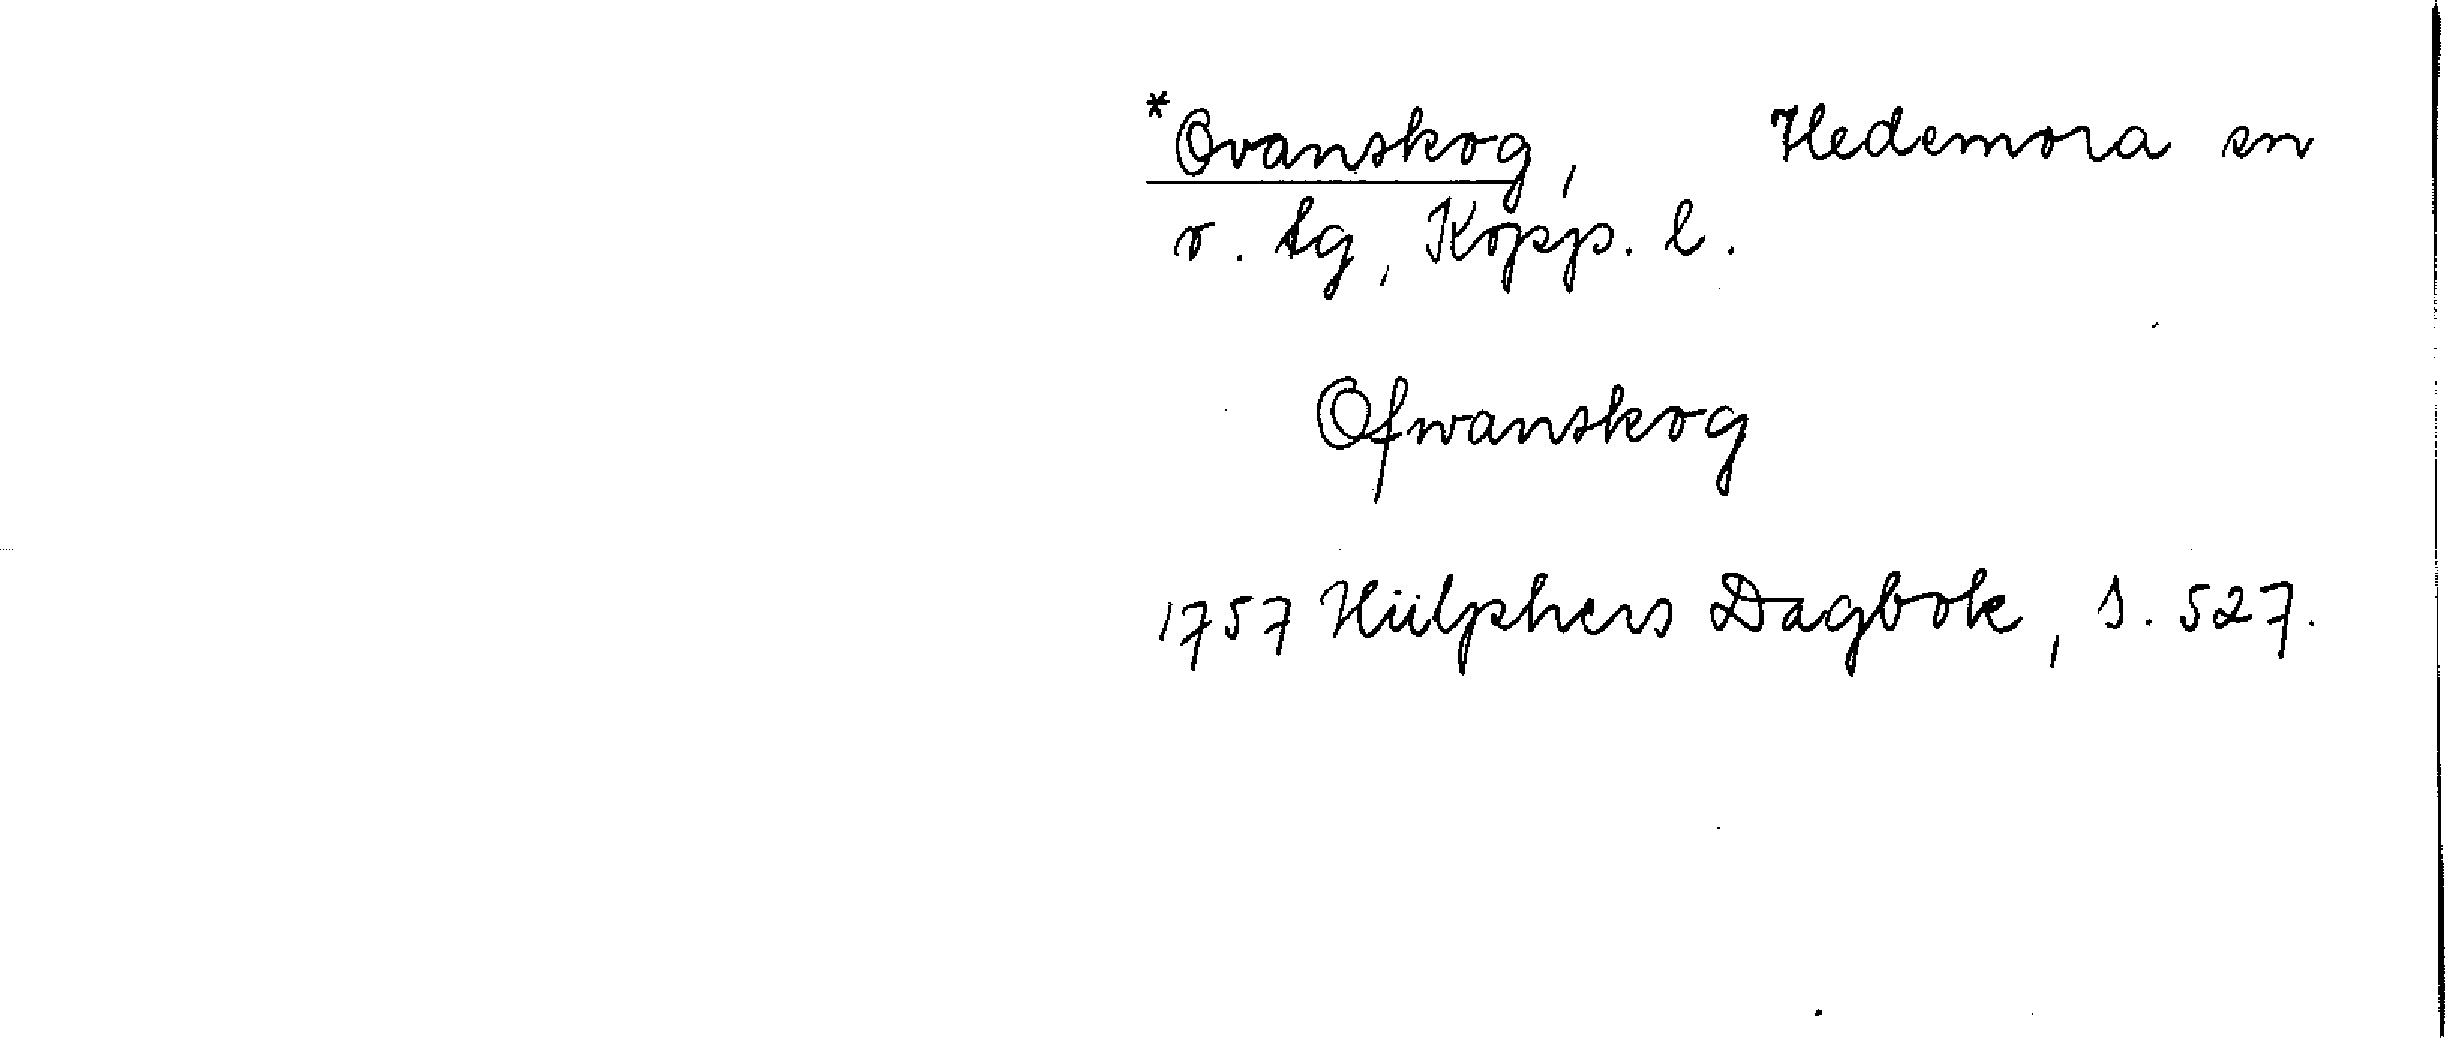 *Ovanskog, Hedemora sn
v. tg, Kopp. l.
Ofwanskog
1757 Hülphers Dagbok, s. 527.